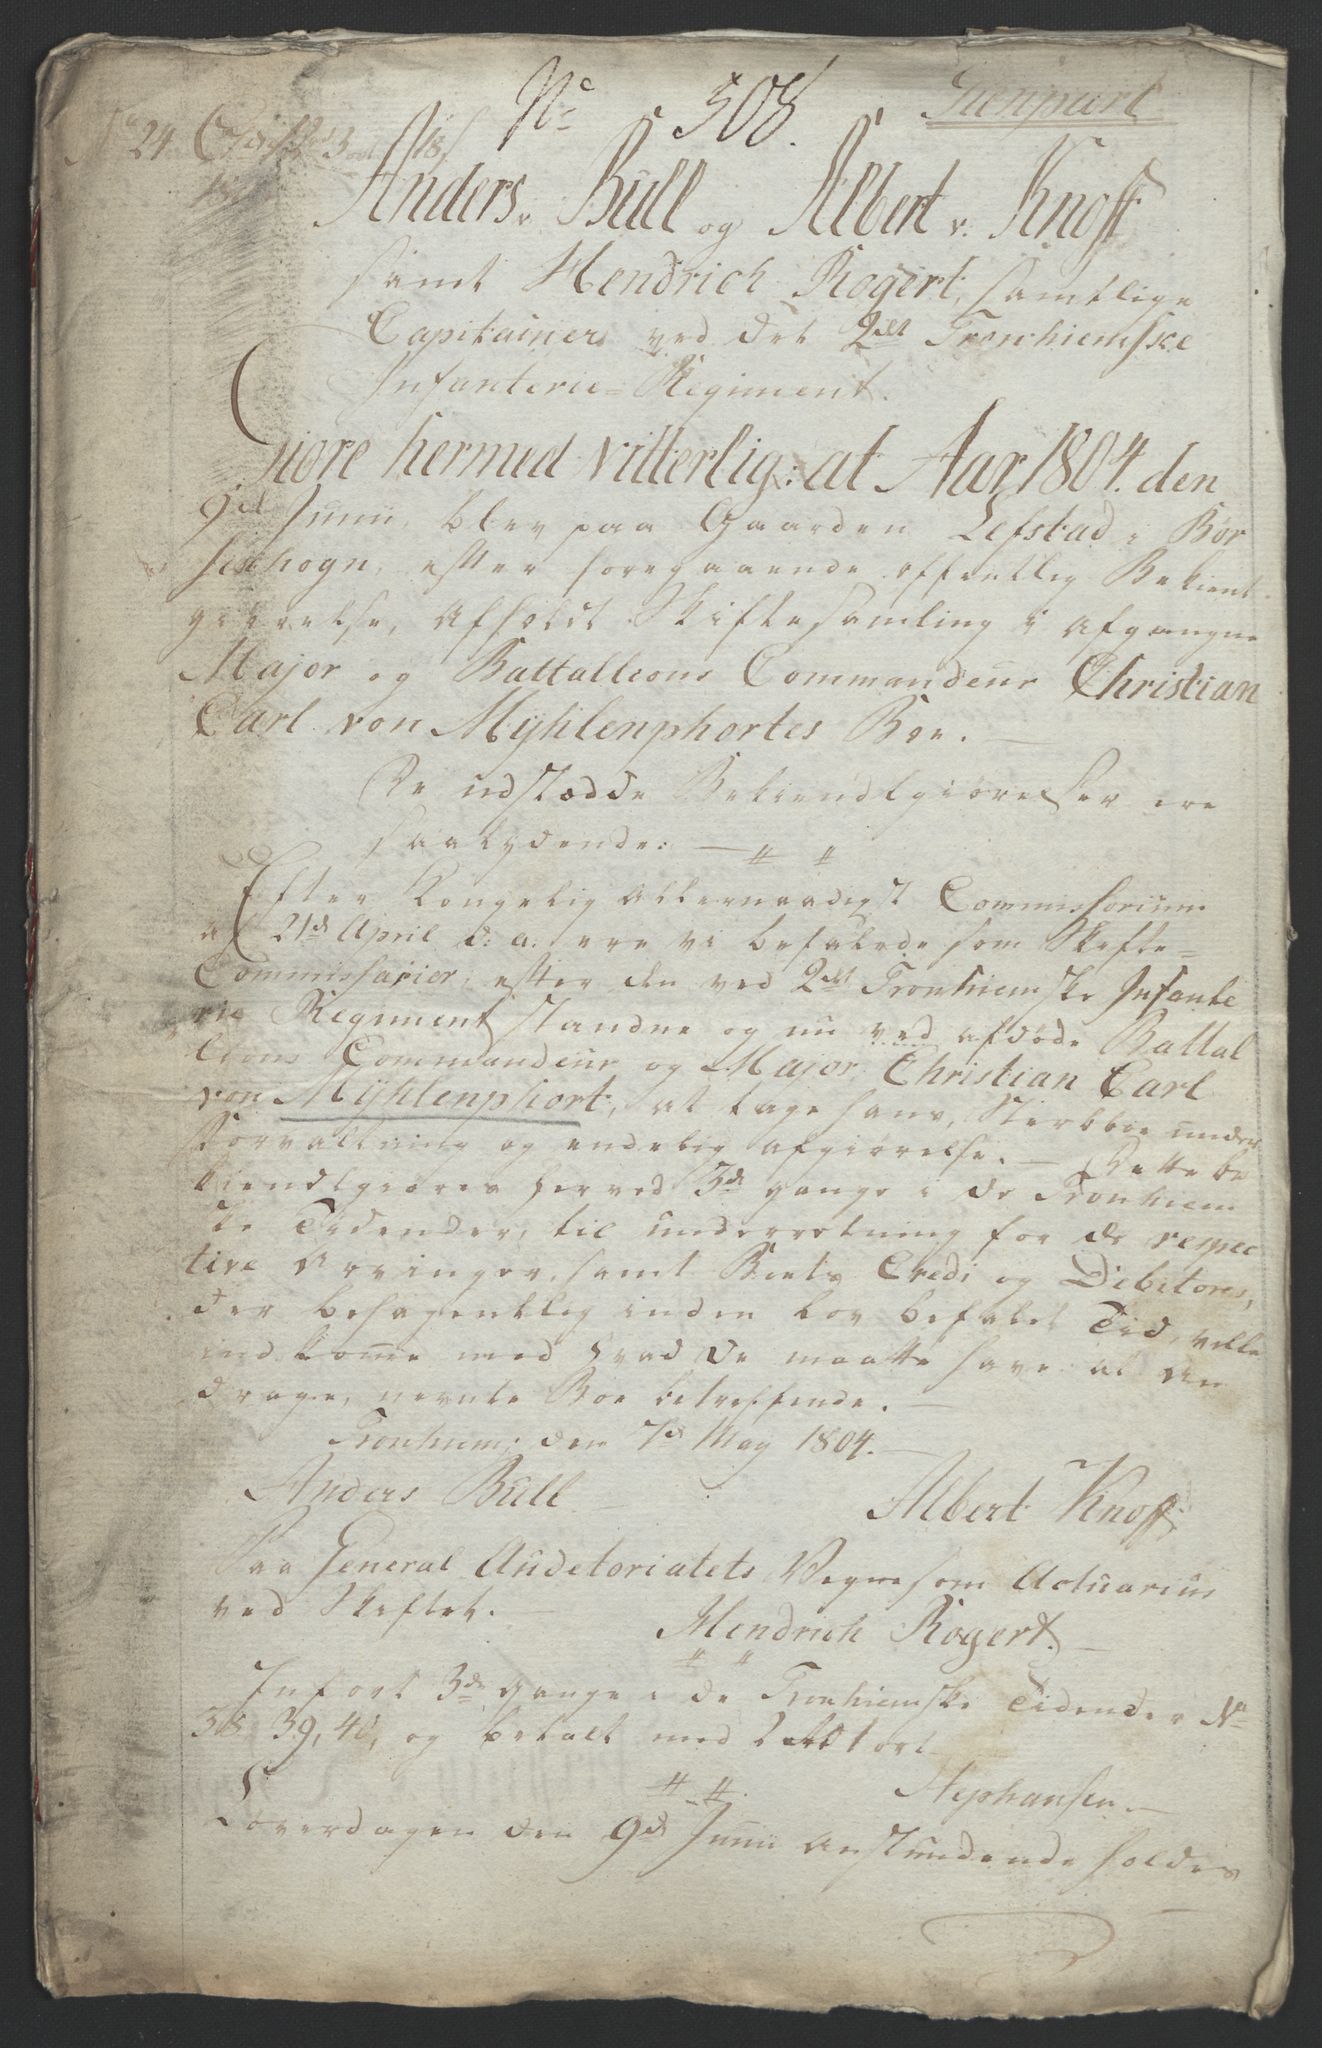 No 508.
Gienpart
No 24
Anders v. Bull og Albert v. Knoff
samt Hendrich Rogert, samtlige
Capitainer ved det 2det Tronhiemske
Infanterie-Regiment.
Giøre hermed vitterlig: at Aar 1804. den
9de Junii, blev paa Gaarden Lefstad i Bør
sesschogn, efter foregaaende offentlig Bekient
giørelse, afholdt Skiftesamling i afgangne
Major og Battallions Commandeur Christian
Carl von Myhlenphortes Boe. —
De udstædde Bekiendtgiørelser ere
saalydende: —
Efter Kongelig allernaadigst Commissorium
af 21de April d: a: ere vi befalede som Skifte-
Commissarier, efter den ved 2det Tronhiemske Infante
rie Regiment standne og nu ved afdøde Battal
lions Commandeur og Major Christian Carl
von Myhlenphort, at tage hans Sterbboe under
Forvaltning og endelig afgiørelse. — Dette be
kiendtgiøres herved 3de gange i de Tronhiem
ske Tidender, til underretning for de respec
tive Arvinger, samt Boets Credi og Debitorer,
der behagentlig inden lov befalet Tid, ville
indkome med hvad de maatte have at an
drage, nævnte Boe betreffende. —
Tronhiem, den 7de May 1804. —
Anders Bull
Albert Knoff
Paa General Auditoriatets Vegne som Actuarius
ved Skiftet. —
Hendrich Rogert. —
Indført 3de gange i de Tronhiemske Tidender No
38, 39, 40, og betalt med 2 rd 1 ort
Stephansen. —
Løverdagen den 9de Junii anstundende holdes